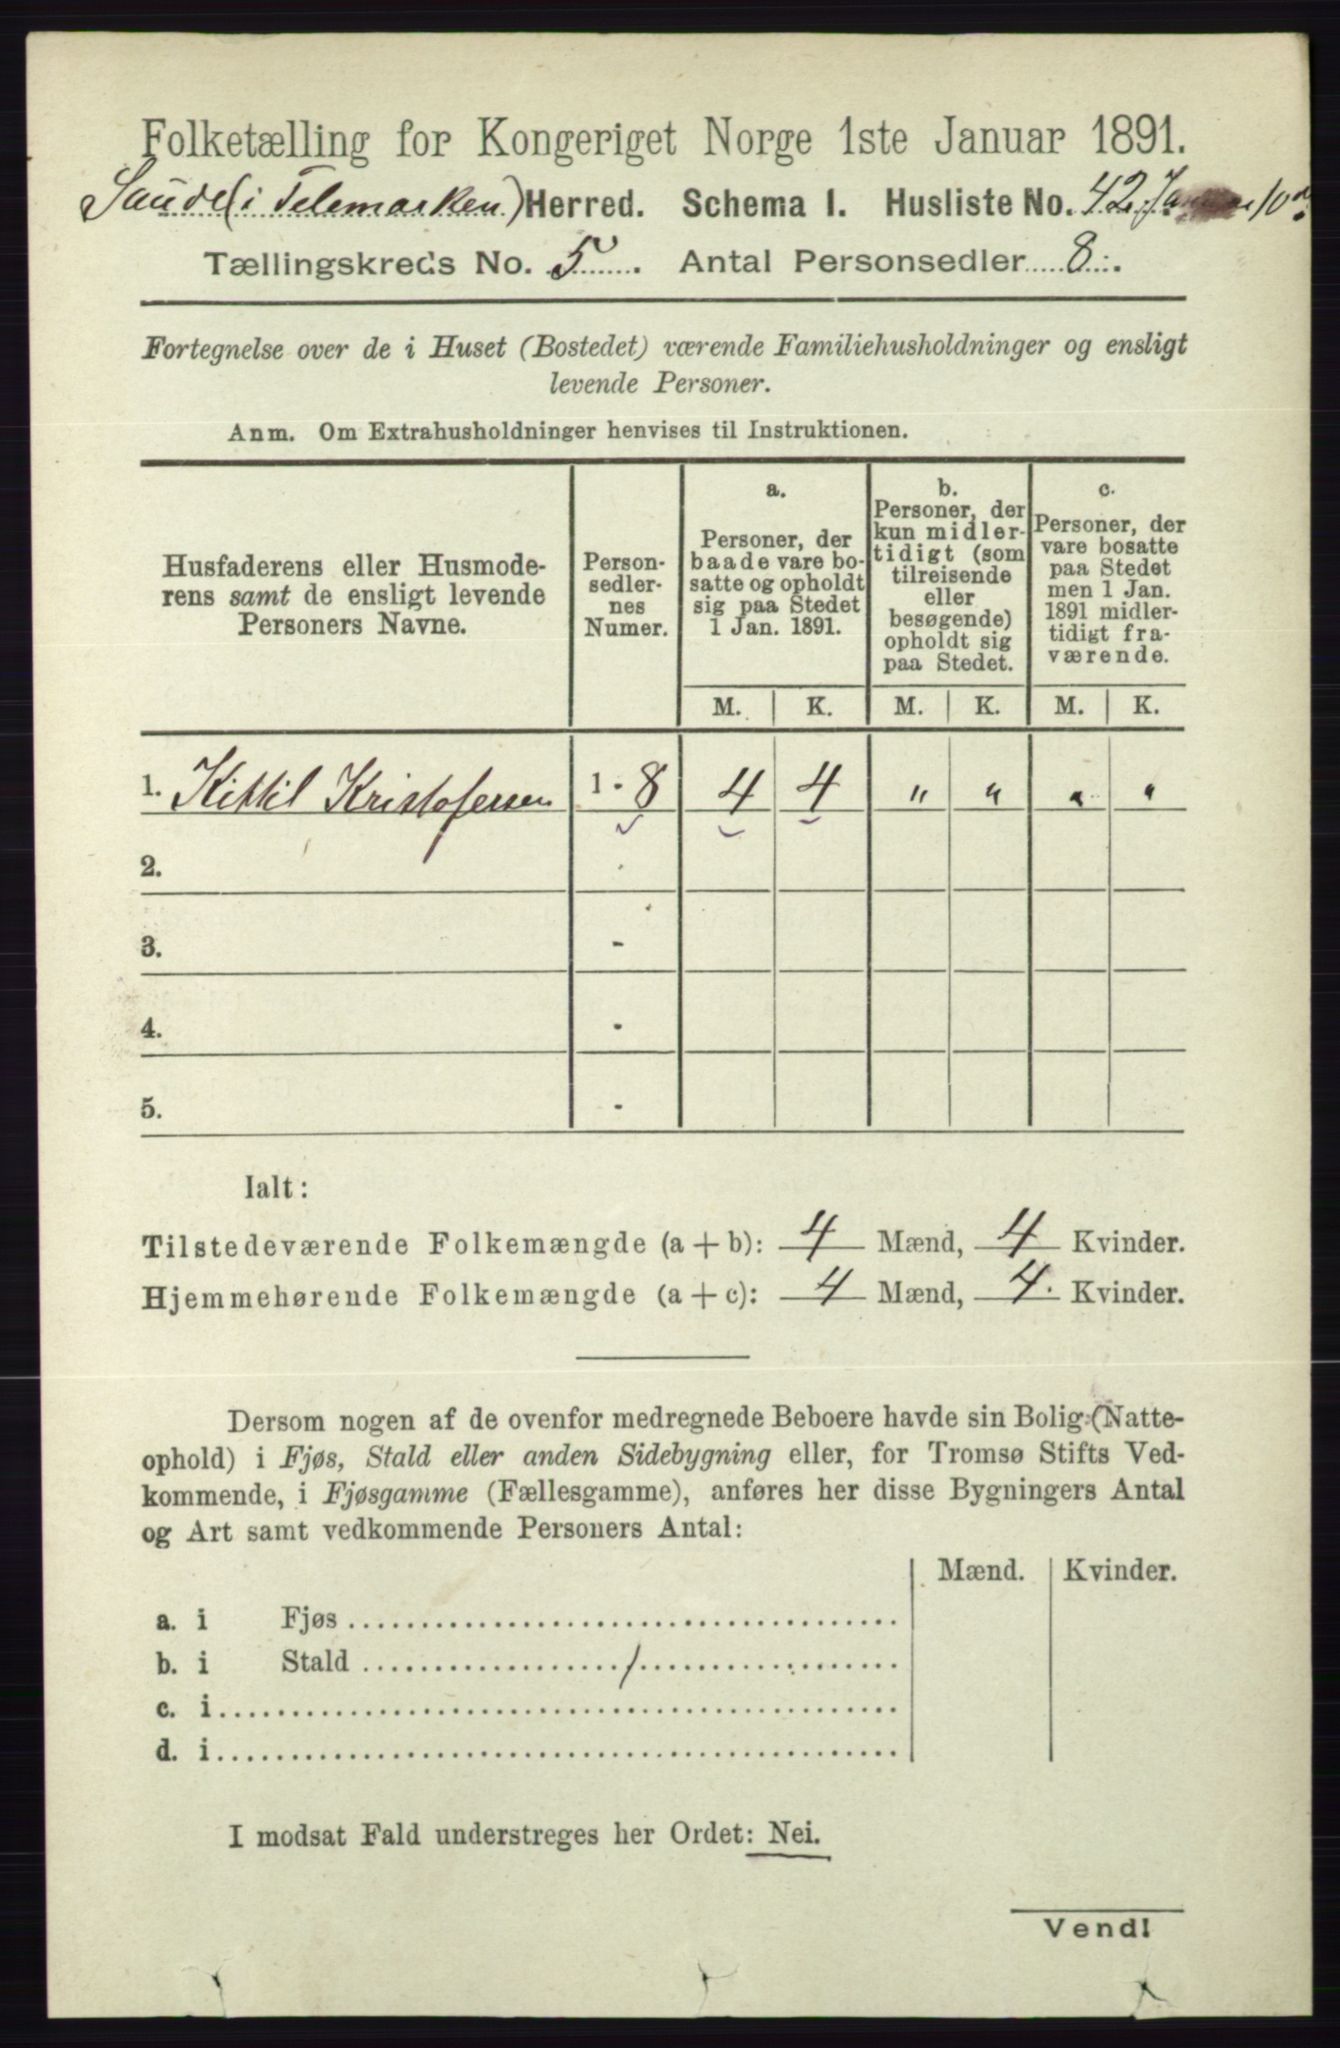 Folketælling for Kongeriget Norge 1ste Januar 1891.
Saude (i Telemarken) Herred. Schema I. Husliste No. 42
Tællingskreds No. 5. Antal Personsedler 8.
Fortegnelse over de i Huset (Bostedet) værende Familiehusholdninger og ensligt
levende Personer.
Anm. Om Extrahusholdninger henvises til Instruktionen.
Husfaderens eller Husmode-
rens samt de ensligt levende
Personers Navne.
Person-
sedler-
nes
Numer.
a.
Personer, der
baade vare bo-
satte og opholdt
sig paa Stedet
1 Jan. 1891.
b.
Personer, der
kun midler-
tidigt (som
tilreisende
eller
besøgende)
opholdt sig
paa Stedet.
c.
Personer, der
vare bosatte
paa Stedet
men 1 Jan.
1891 midler-
tidigt fra-
værende.
M. K. M. K. M. K.
1. Kittil Kristofersen 1 - 8 4 4 " " " "
2.
3. -
4. -
5. -
Ialt:
Tilstedeværende Folkemængde (a + b): 4 Mænd, 4 Kvinder.
Hjemmehørende Folkemængde (a + c): 4 Mænd, 4. Kvinder.
Dersom nogen af de ovenfor medregnede Beboere havde sin Bolig (Natte-
ophold) i Fjøs, Stald eller anden Sidebygning eller, for Tromsø Stifts Ved-
kommende, i Fjøsgamme (Fællesgamme), anføres her disse Bygningers Antal
og Art samt vedkommende Personers Antal:
Mænd. Kvinder.
a. i Fjøs
b. i Stald
c. i
d. i
I modsat Fald understreges her Ordet: Nei.
Vend!